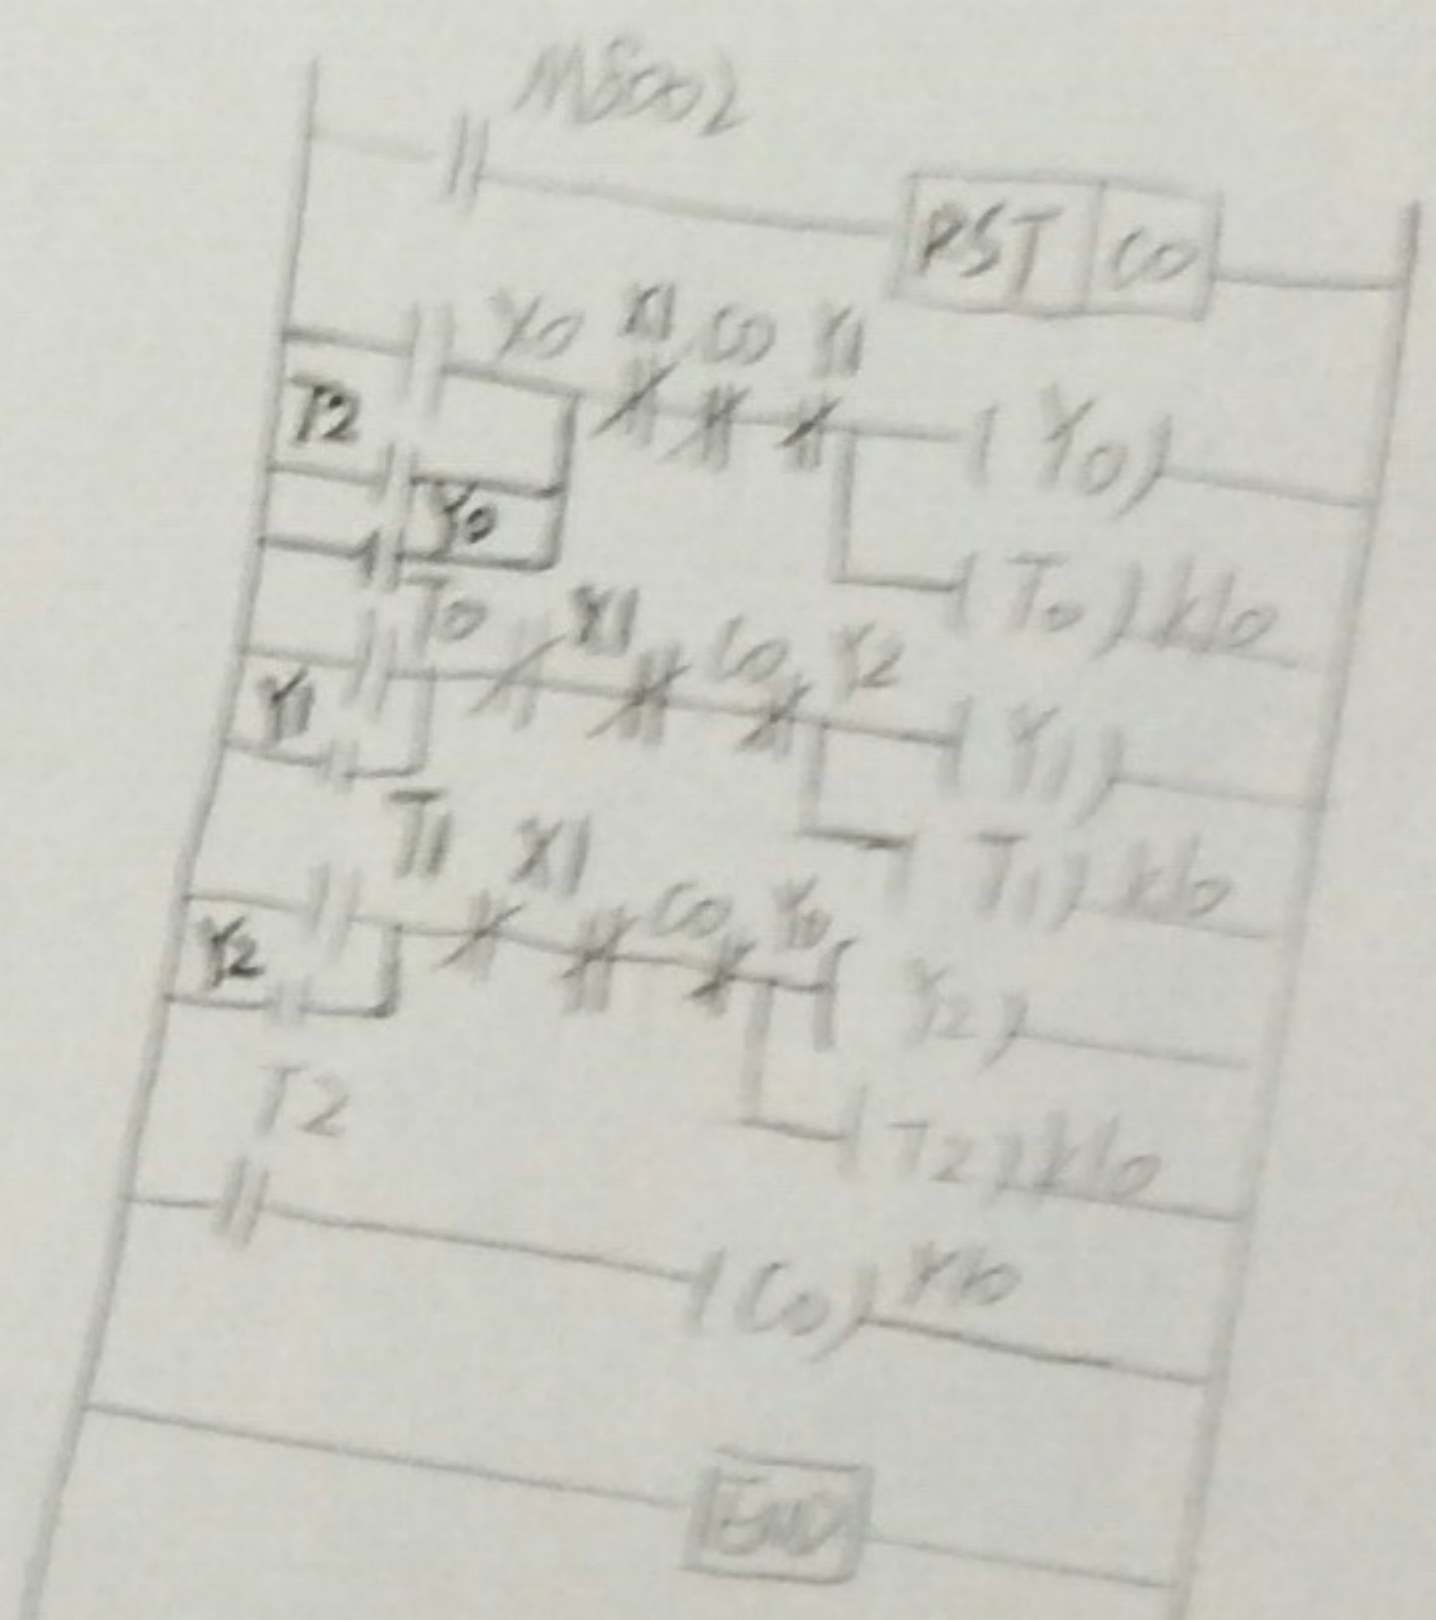 M8002
RST C0
X0 X1 C0 Y1
T2
Y0
Y0
T0 K10
T0 X1 C0 Y2
Y1
Y1
T1 K10
T1 X1 C0 Y0
Y2
Y2
T2 K10
T2
C0
END